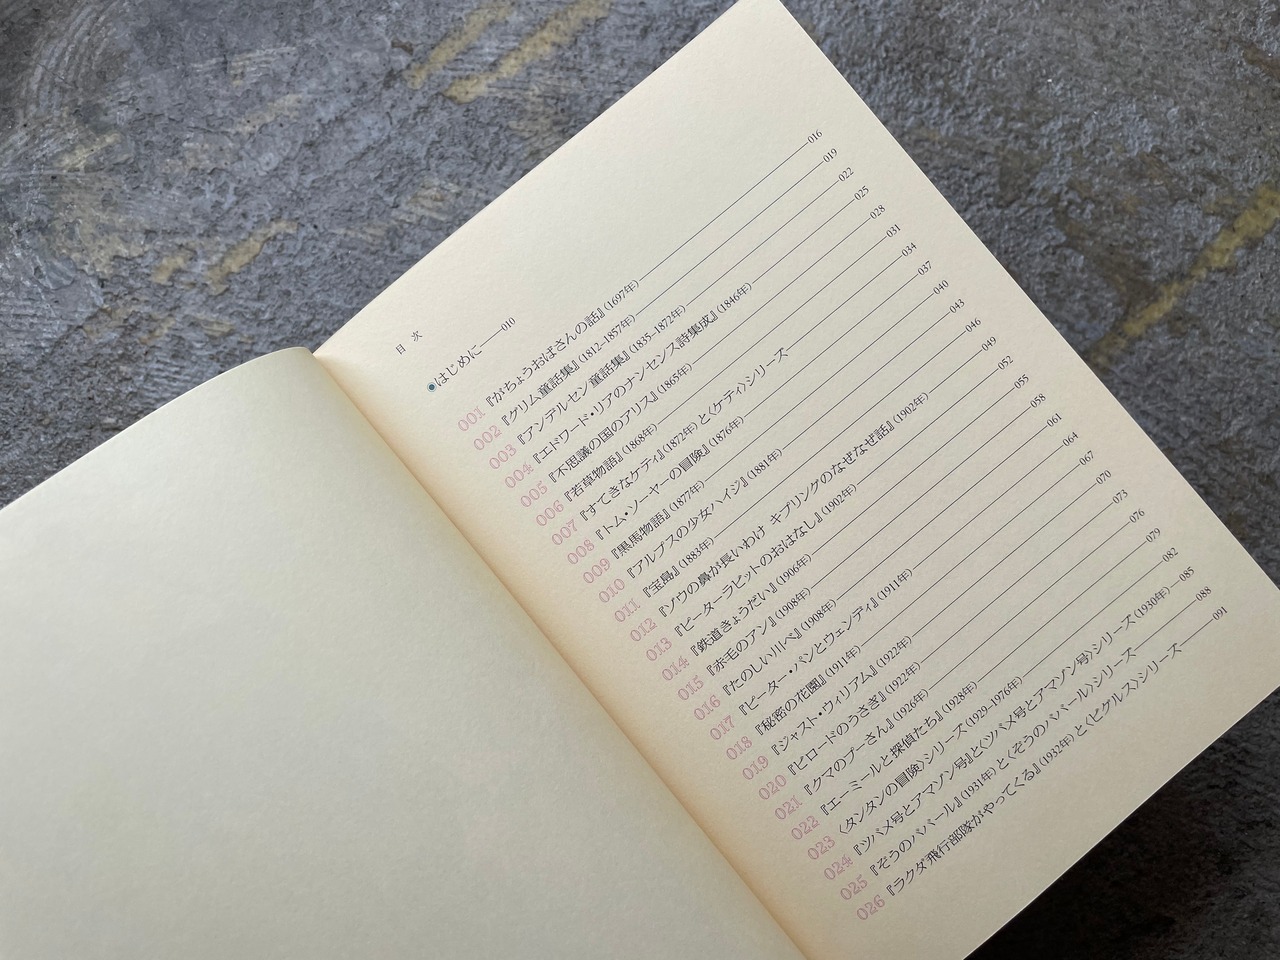 目次
●はじめに——010
001 『がちょうおばさんの話』(1697年)——016
002 『グリム童話集』(1812–1857年)——019
003 『アンデルセン童話集』(1835–1872年)——022
004 『エドワード・リアのナンセンス詩集成』(1846年)——025
005 『不思議の国のアリス』(1865年)——028
006 『若草物語』(1868年)——031
007 『すてきなケティ』(1872年)と〈ケティ〉シリーズ——034
008 『トム・ソーヤーの冒険』(1876年)——037
009 『黒馬物語』(1877年)——040
010 『アルプスの少女ハイジ』(1881年)——043
011 『宝島』(1883年)——046
012 『ゾウの鼻が長いわけ キプリングのなぜなぜ話』(1902年)——049
013 『ピーターラビットのおはなし』(1902年)——052
014 『鉄道きょうだい』(1906年)——055
015 『赤毛のアン』(1908年)——058
016 『たのしい川べ』(1908年)——061
017 『ピーター・パンとウェンディ』(1911年)——064
018 『秘密の花園』(1911年)——067
019 『ジャスト・ウィリアム』(1922年)——070
020 『ビロードのうさぎ』(1922年)——073
021 『クマのプーさん』(1926年)——076
022 『エーミールと探偵たち』(1928年)——079
023 〈タンタンの冒険〉シリーズ(1929–1976年)——082
024 『ツバメ号とアマゾン号』と〈ツバメ号とアマゾン号〉シリーズ(1930年)——085
025 『ぞうのババール』(1931年)と〈ぞうのババール〉シリーズ——088
026 『ラクダ飛行部隊がやってくる』(1932年)と〈ビグルス〉シリーズ——091